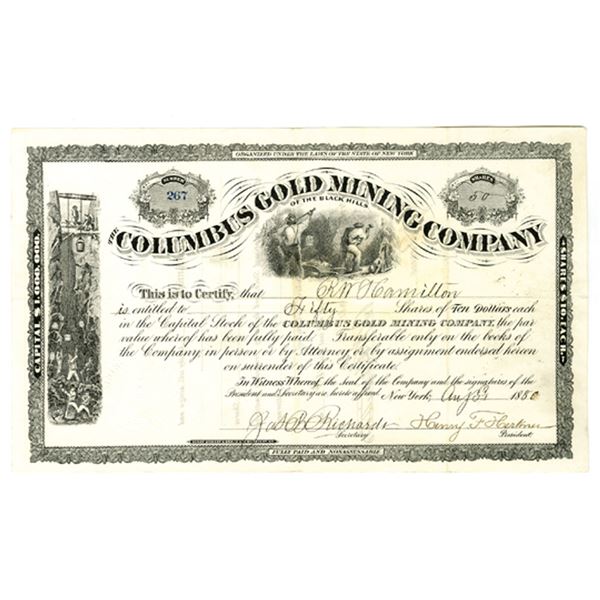 ORGANIZED UNDER THE LAWS OF THE STATE OF NEW YORK
NUMBER
267
SHARES
50
THE COLUMBUS GOLD MINING COMPANY
OF THE BLACK HILLS
CAPITAL $1,000,000.
SHARES $10 EACH.
This is to Certify, that R W Hamilton
is entitled to Fifty Shares of Ten Dollars each
in the Capital Stock of the COLUMBUS GOLD MINING COMPANY, the par
value whereof has been fully paid. Transferable only on the books of
the Company in person or by Attorney or by assignment endorsed hereon
on surrender of this Certificate.
In Witness Whereof, the Seal of the Company and the signatures of the
President and Secretary are hereto affixed New York, Aug 1880
Richards
Secretary
Henry F
President
FULLY PAID AND NONASSESSABLE